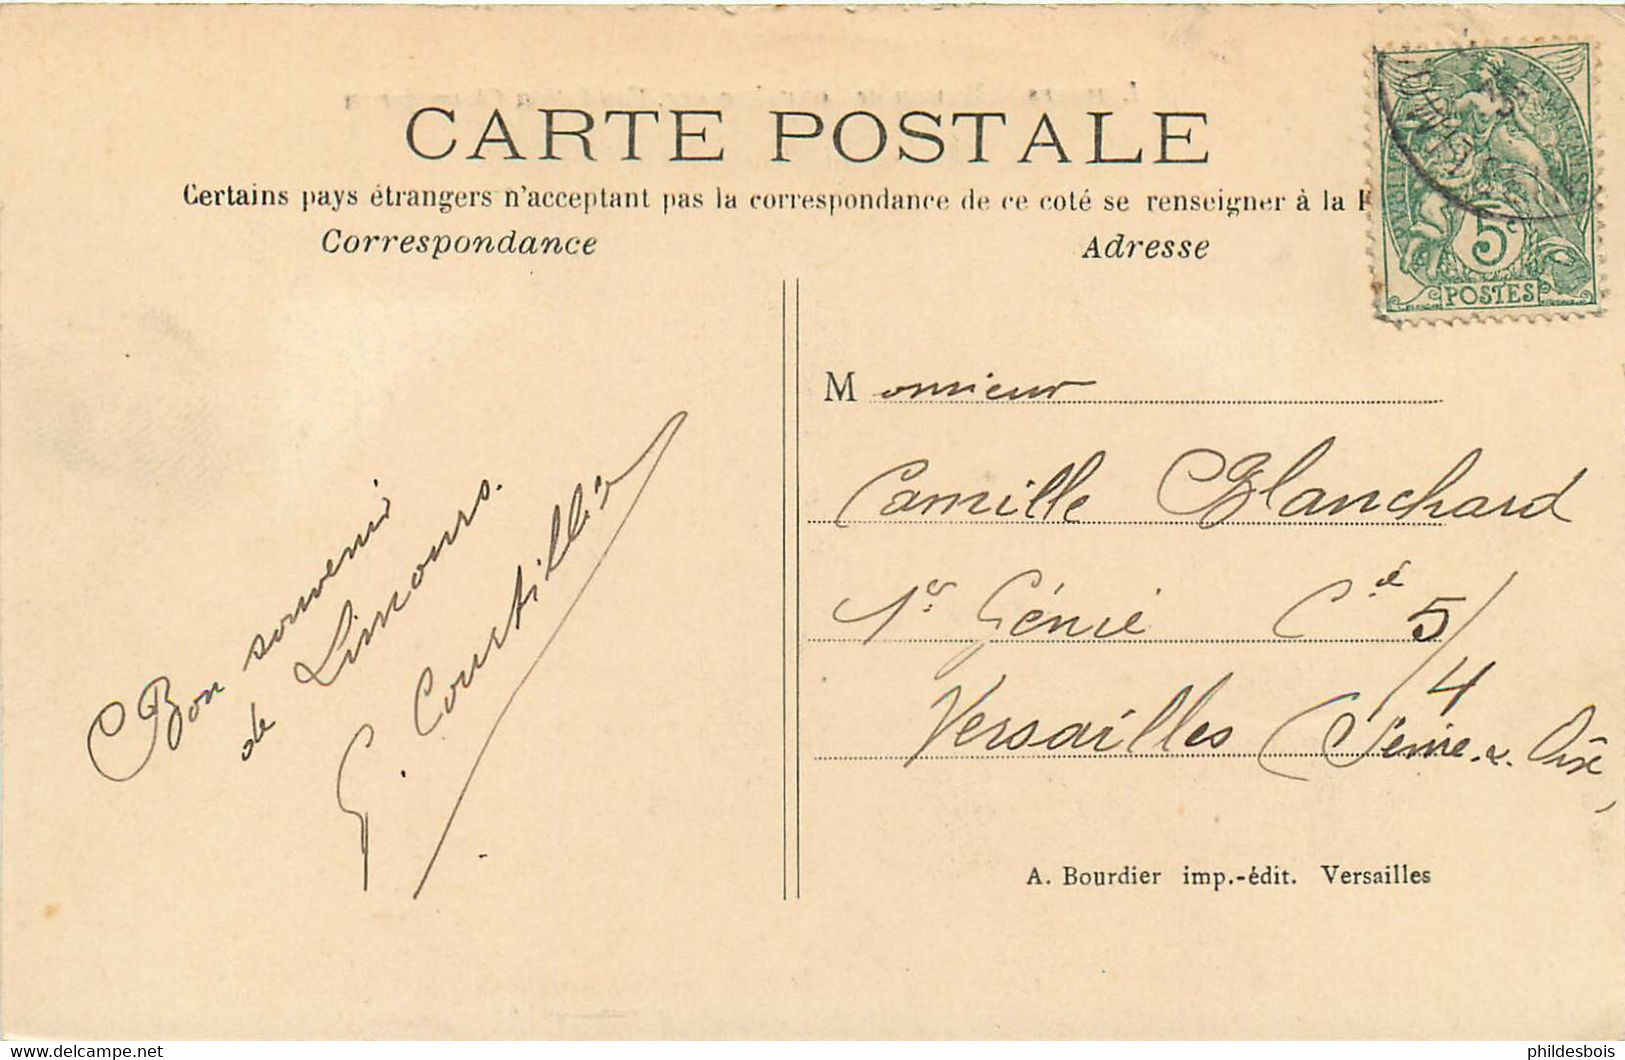 CARTE POSTALE
Certains pays étrangers n'acceptant pas la correspondance de ce coté se renseigner à la
Correspondance
Adresse
5c
POSTES
Bon souvenir
de Limours.
G. Courtillié
Monsieur
Camille Blanchard
1er Génie Cie 5/4
Versailles (Seine & Oise
A. Bourdier imp.-édit. Versailles
delcampe.net
phildesbois